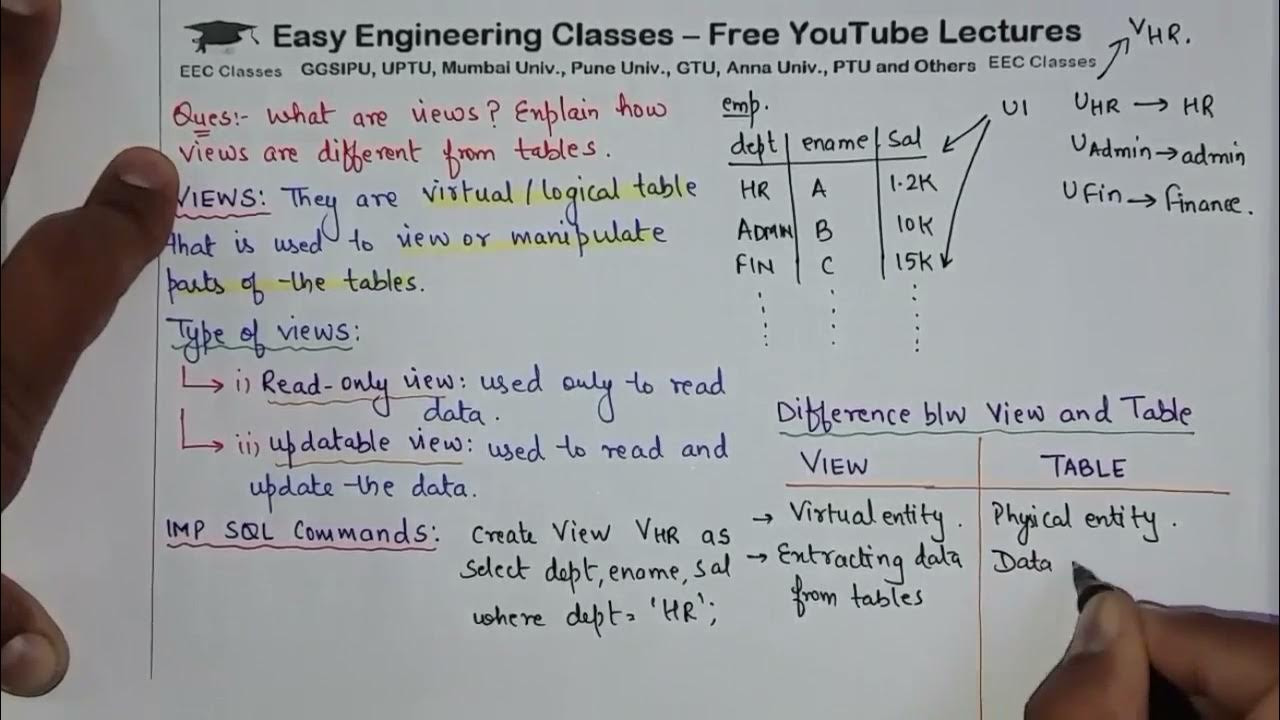 Easy Engineering Classes – Free YouTube Lectures
EEC Classes GGSIPU, UPTU, Mumbai Univ., Pune Univ., GTU, Anna Univ., PTU and Others EEC Classes
VHR.
Ques:- What are views? Explain how
views are different from tables.
VIEWS: They are virtual/logical table
that is used to view or manipulate
parts of the tables.
Type of views:
i) Read-only view: used only to read
data.
ii) updatable view: used to read and
update the data.
IMP SQL Commands: Create View VHR as
Select dept, ename, sal
where dept = 'HR';
emp.
dept ename sal
HR A 1.2K
ADMIN B 10K
FIN C 15K
UI
UHR → HR
UAdmin → admin
UFin → finance.
Difference b/w View and Table
VIEW TABLE
→ Virtual entity. Physical entity.
→ Extracting data Data
from tables